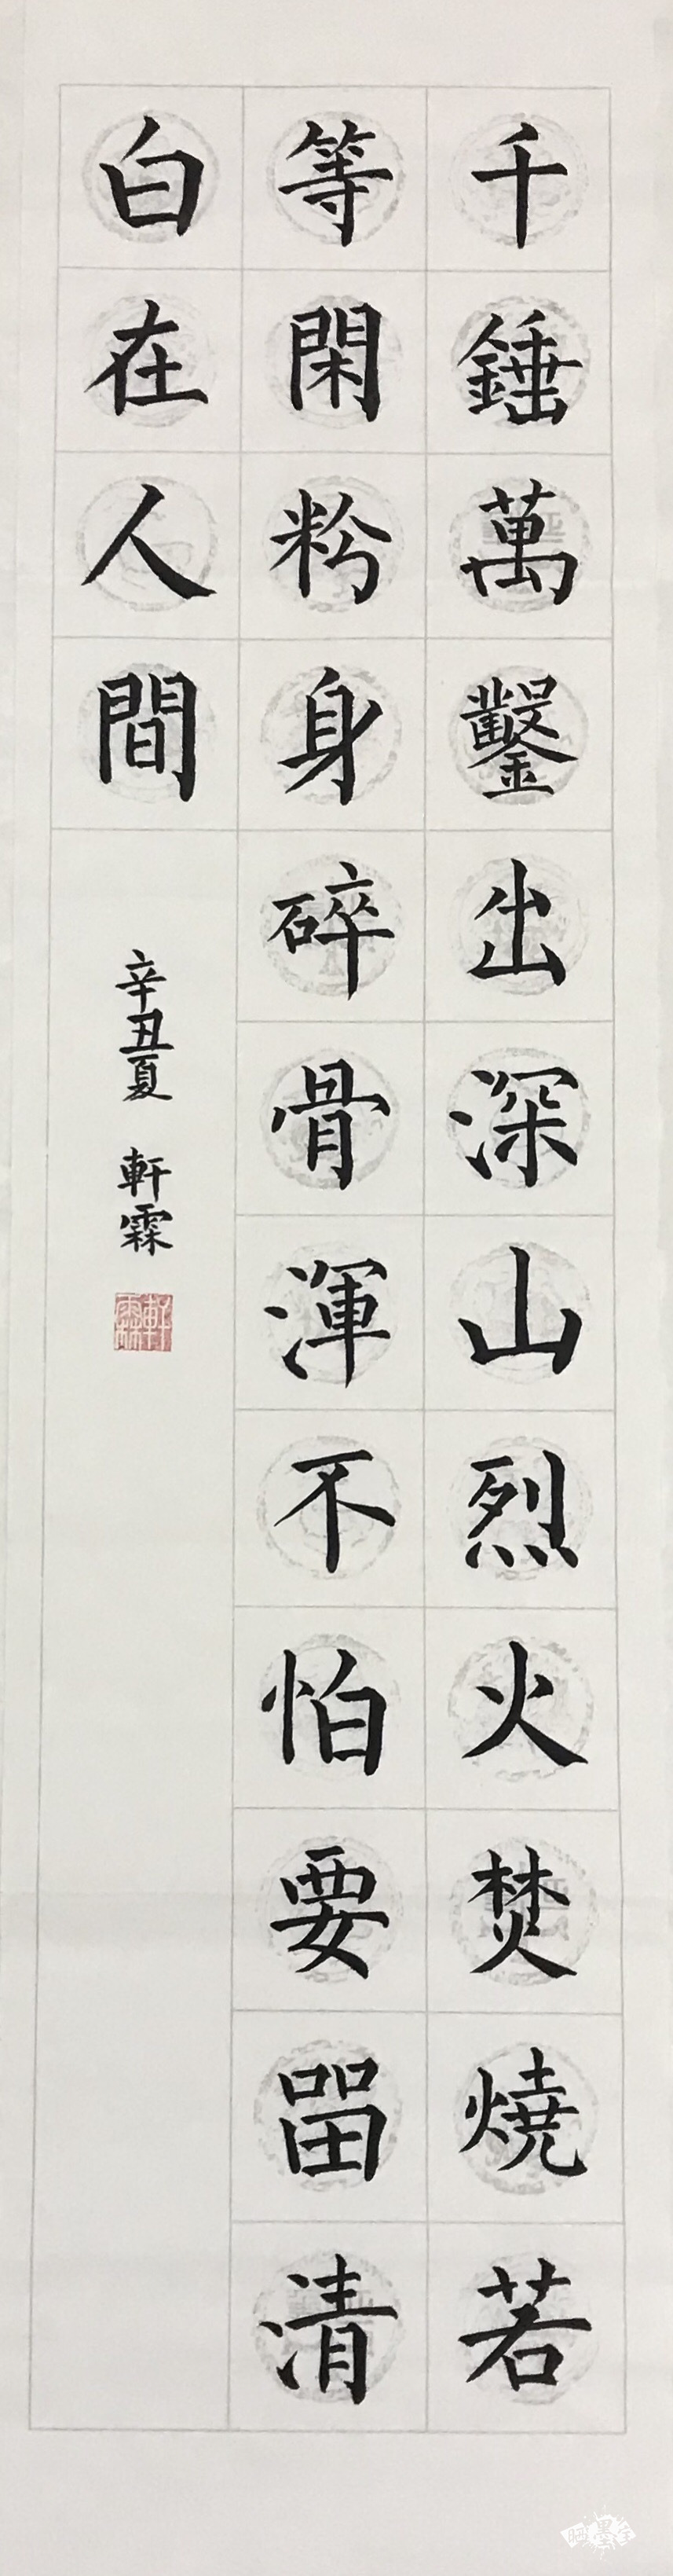 千錘萬鑿出深山烈火焚燒若
等閑粉身碎骨渾不怕要留清
白在人間
辛丑夏 軒霖
軒霖
晒墨宝